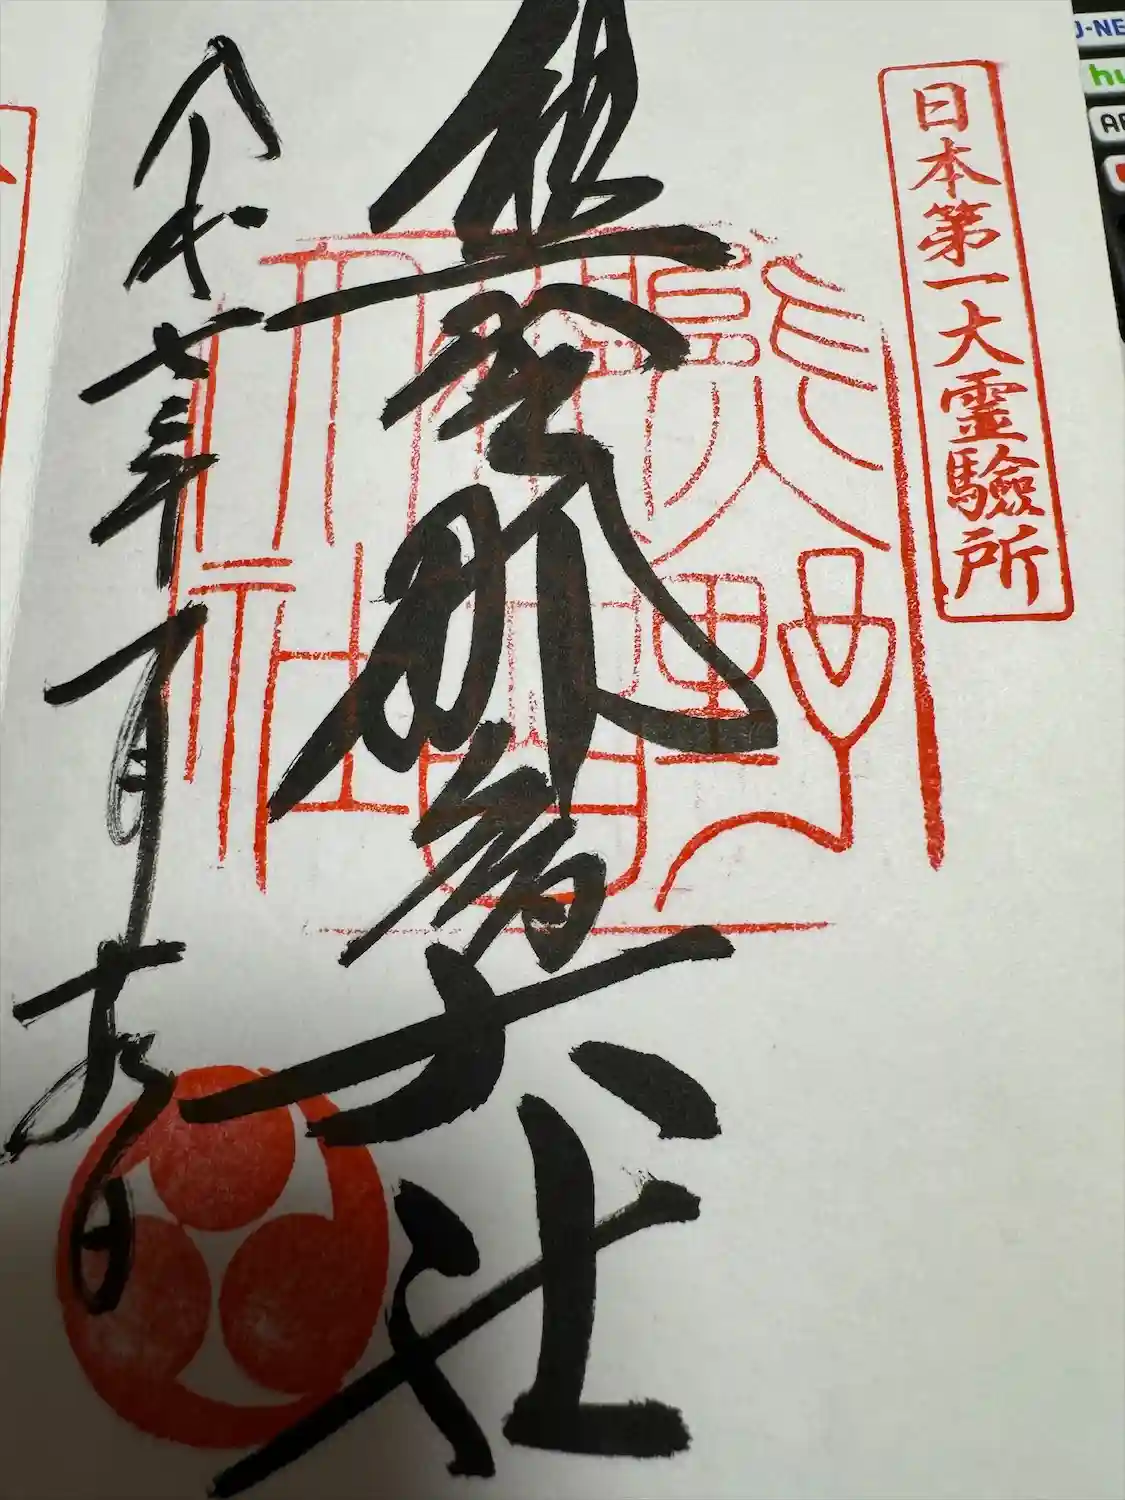 日本第一大霊驗所
熊野那智大社
熊野
那智
大社
令和七年 月十九日